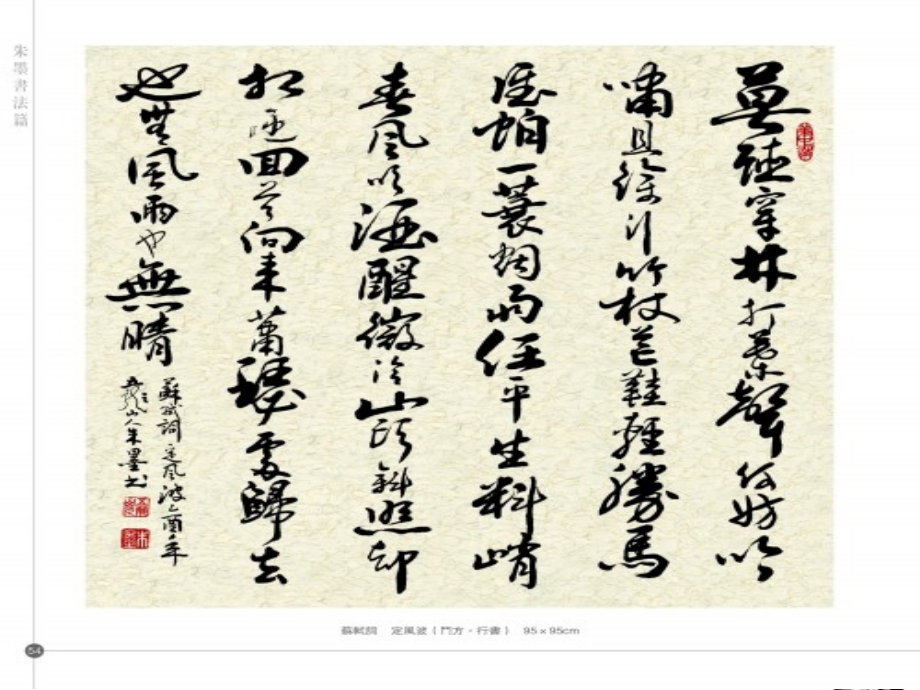 朱墨書法篇
莫聽穿林打葉聲何妨吟
嘯且徐行竹杖芒鞋輕勝馬
誰怕一蓑烟雨任平生料峭
春風吹酒醒微冷山頭斜照却
相迎回首向来蕭瑟處歸去
也無風雨也無晴
蘇軾詞定風波乙酉年
龍山人朱墨书
蘇軾詞 定風波（鬥方·行書） 95×95cm
54